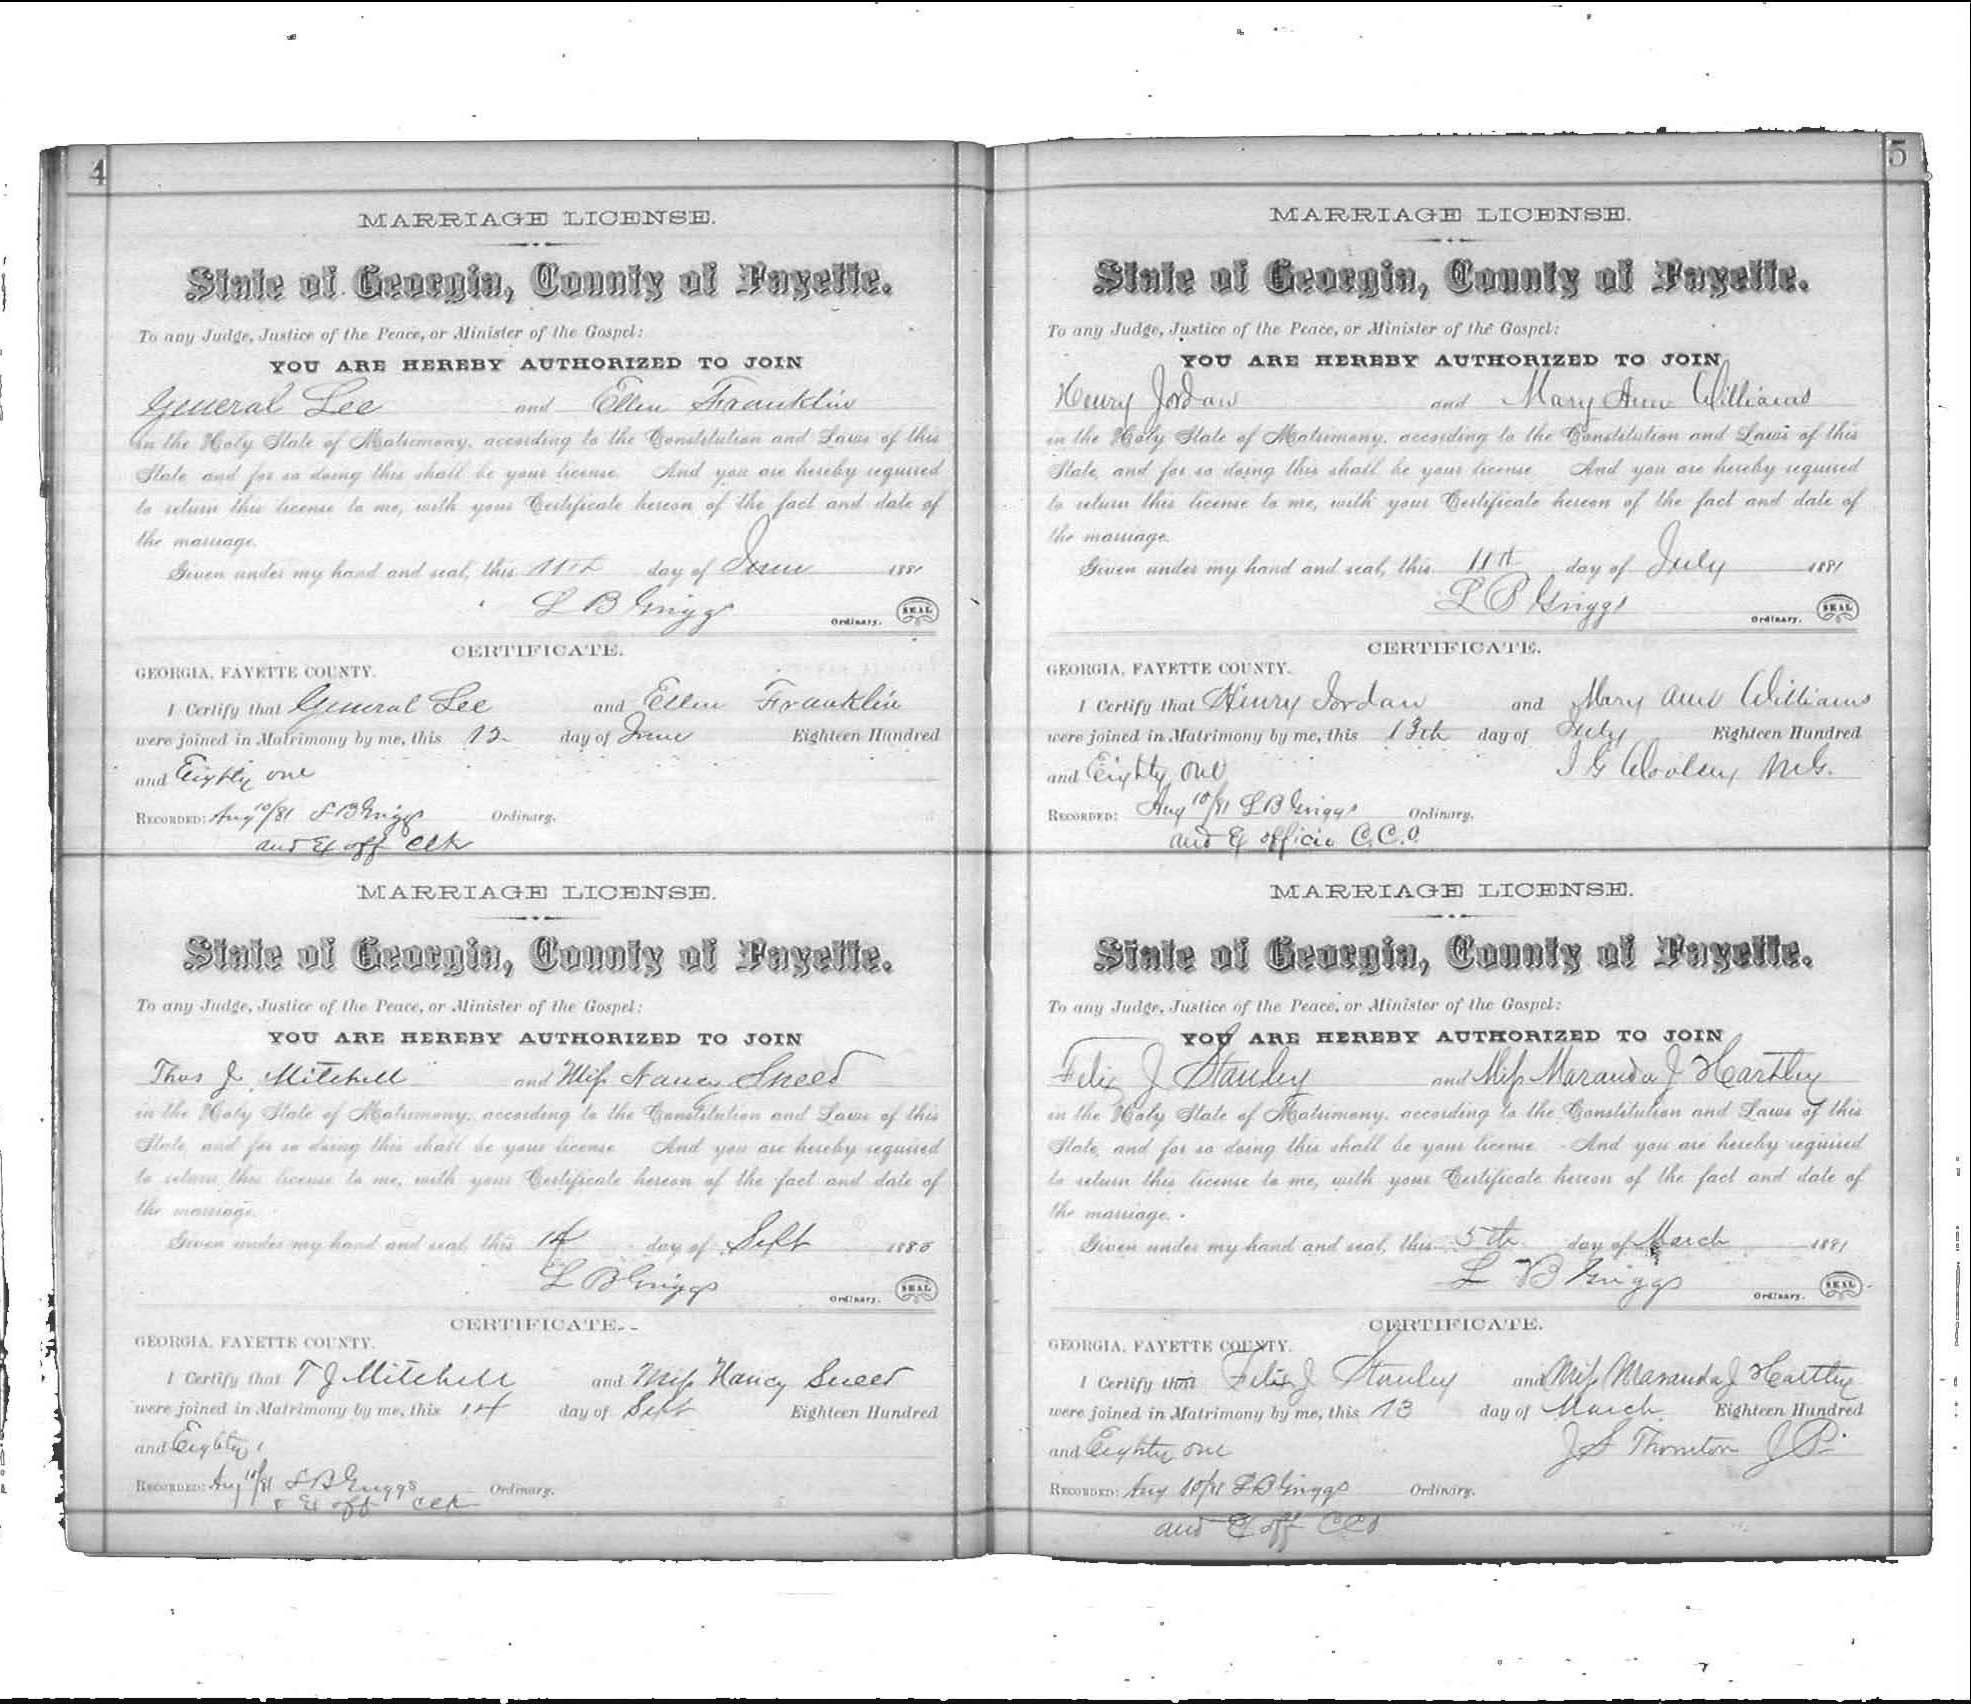 4
MARRIAGE LICENSE.
State of Georgia, County of Fayette.
To any Judge, Justice of the Peace, or Minister of the Gospel:
YOU ARE HEREBY AUTHORIZED TO JOIN
General Lee and Ellen Franklin
in the Holy State of Matrimony, according to the Constitution and Laws of this
State, and for so doing this shall be your license. And you are hereby required
to return this license to me, with your Certificate hereon of the fact and date of
the marriage.
Given under my hand and seal, this 11th day of June 1881
L B Griggs Ordinary. SEAL
CERTIFICATE.
GEORGIA, FAYETTE COUNTY.
I Certify that General Lee and Ellen Franklin
were joined in Matrimony by me, this 12 day of June Eighteen Hundred
and Eighty one
RECORDED: Aug 10/81 L B Griggs Ordinary.
and Ex off Clk
MARRIAGE LICENSE.
State of Georgia, County of Fayette.
To any Judge, Justice of the Peace, or Minister of the Gospel:
YOU ARE HEREBY AUTHORIZED TO JOIN
Thos J Mitchell and Miss Nancy Sneed
in the Holy State of Matrimony, according to the Constitution and Laws of this
State, and for so doing this shall be your license. And you are hereby required
to return this license to me, with your Certificate hereon of the fact and date of
the marriage.
Given under my hand and seal, this 14 day of Sept 1880
L B Griggs Ordinary. SEAL
CERTIFICATE.
GEORGIA, FAYETTE COUNTY.
I Certify that T J Mitchell and Miss Nancy Sneed
were joined in Matrimony by me, this 14 day of Sept Eighteen Hundred
and Eighty
RECORDED: Aug 10/81 L B Griggs Ordinary.
& Ex off Clk
5
MARRIAGE LICENSE.
State of Georgia, County of Fayette.
To any Judge, Justice of the Peace, or Minister of the Gospel:
YOU ARE HEREBY AUTHORIZED TO JOIN
Henry Jordan and Mary Ann Williams
in the Holy State of Matrimony, according to the Constitution and Laws of this
State, and for so doing this shall be your license. And you are hereby required
to return this license to me, with your Certificate hereon of the fact and date of
the marriage.
Given under my hand and seal, this 11th day of July 1881
L B Griggs Ordinary. SEAL
CERTIFICATE.
GEORGIA, FAYETTE COUNTY.
I Certify that Henry Jordan and Mary Ann Williams
were joined in Matrimony by me, this 13th day of July Eighteen Hundred
and Eighty one J G Woolsey M.G.
RECORDED: Aug 10/81 L B Griggs Ordinary.
and Ex officio C.C.O.
MARRIAGE LICENSE.
State of Georgia, County of Fayette.
To any Judge, Justice of the Peace, or Minister of the Gospel:
YOU ARE HEREBY AUTHORIZED TO JOIN
Felix J Stanley and Miss Maranda J Hartley
in the Holy State of Matrimony, according to the Constitution and Laws of this
State, and for so doing this shall be your license. And you are hereby required
to return this license to me, with your Certificate hereon of the fact and date of
the marriage.
Given under my hand and seal, this 5th day of March 1881
L B Griggs Ordinary. SEAL
CERTIFICATE.
GEORGIA, FAYETTE COUNTY.
I Certify that Felix J Stanley and Miss Maranda J Hartley
were joined in Matrimony by me, this 13 day of March Eighteen Hundred
and Eighty one J S Thornton J P.
RECORDED: Aug 10/81 L B Griggs Ordinary.
and Ex off CCO